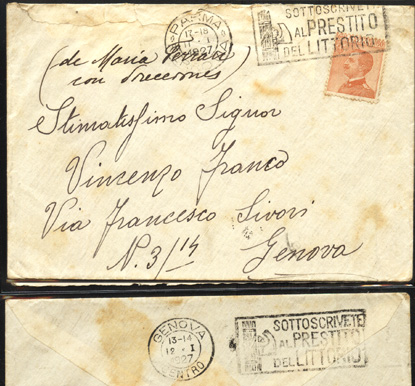 PARMA
17-18
11·I
1927
SOTTOSCRIVETE
AL PRESTITO
DEL LITTORIO
(de Maria Ferrari
con
Stimatissimo Signor
Vincenzo Franco
Via Francesco Sivori
N. 3/14
Genova
GENOVA
13-14
12·I
27
CENTRO
SOTTOSCRIVETE
AL PRESTITO
DEL LITTORIO